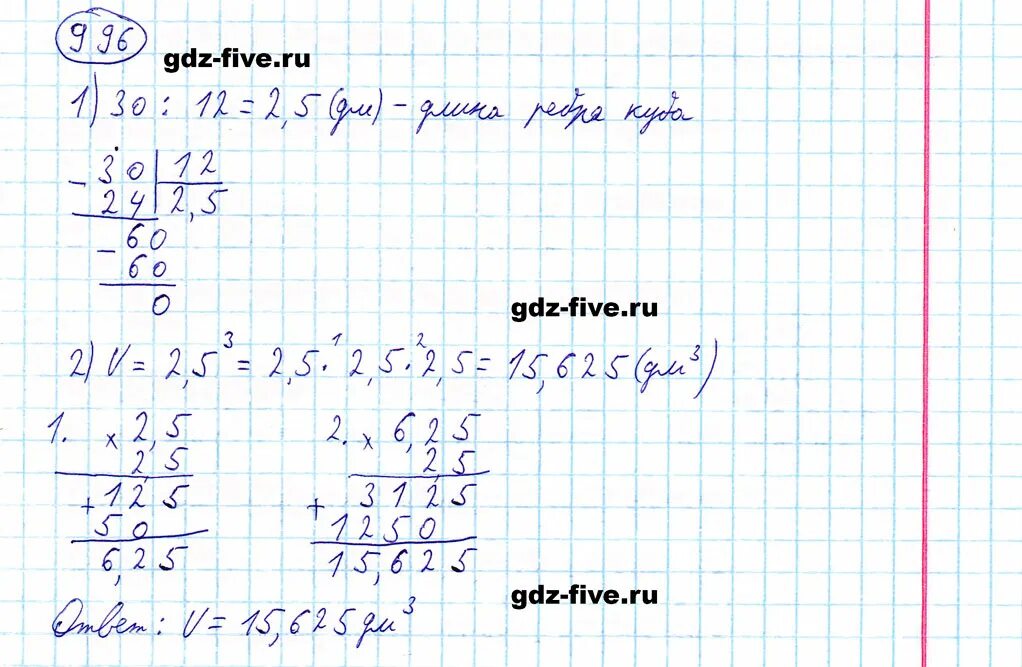 996
gdz-five.ru
1) 30 : 12 = 2,5 (дм) – длина ребра куба
- 30 | 12
24 | 2,5
- 60
60
0
gdz-five.ru
2) V = 2,5³ = 2,5 ·¹ 2,5 ·² 2,5 = 15,625 (дм³)
1. × 2,5
2,5
+ 125
50
6,25
2. × 6,25
2,5
+ 3125
1250
15,625
gdz-five.ru
Ответ: V = 15,625 дм³